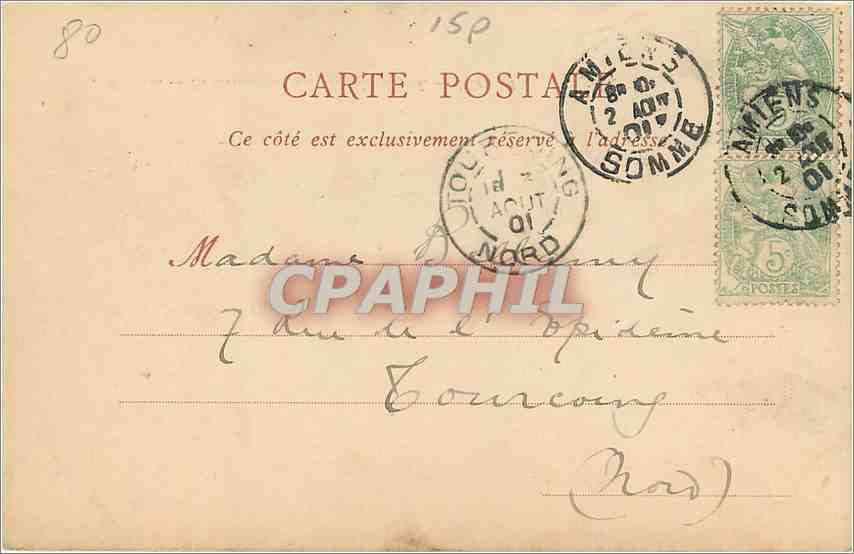 80
15p
CARTE POSTALE
Ce côté est exclusivement réservé à l'adresse
AMIENS
2 AOUT
01
SOMME
AMIENS
2
01
SOMME
TOURCOING
AOUT
01
NORD
5c
POSTES
Madame
CPAPHIL
7 Rue de l'
Tourcoing
(Nord)